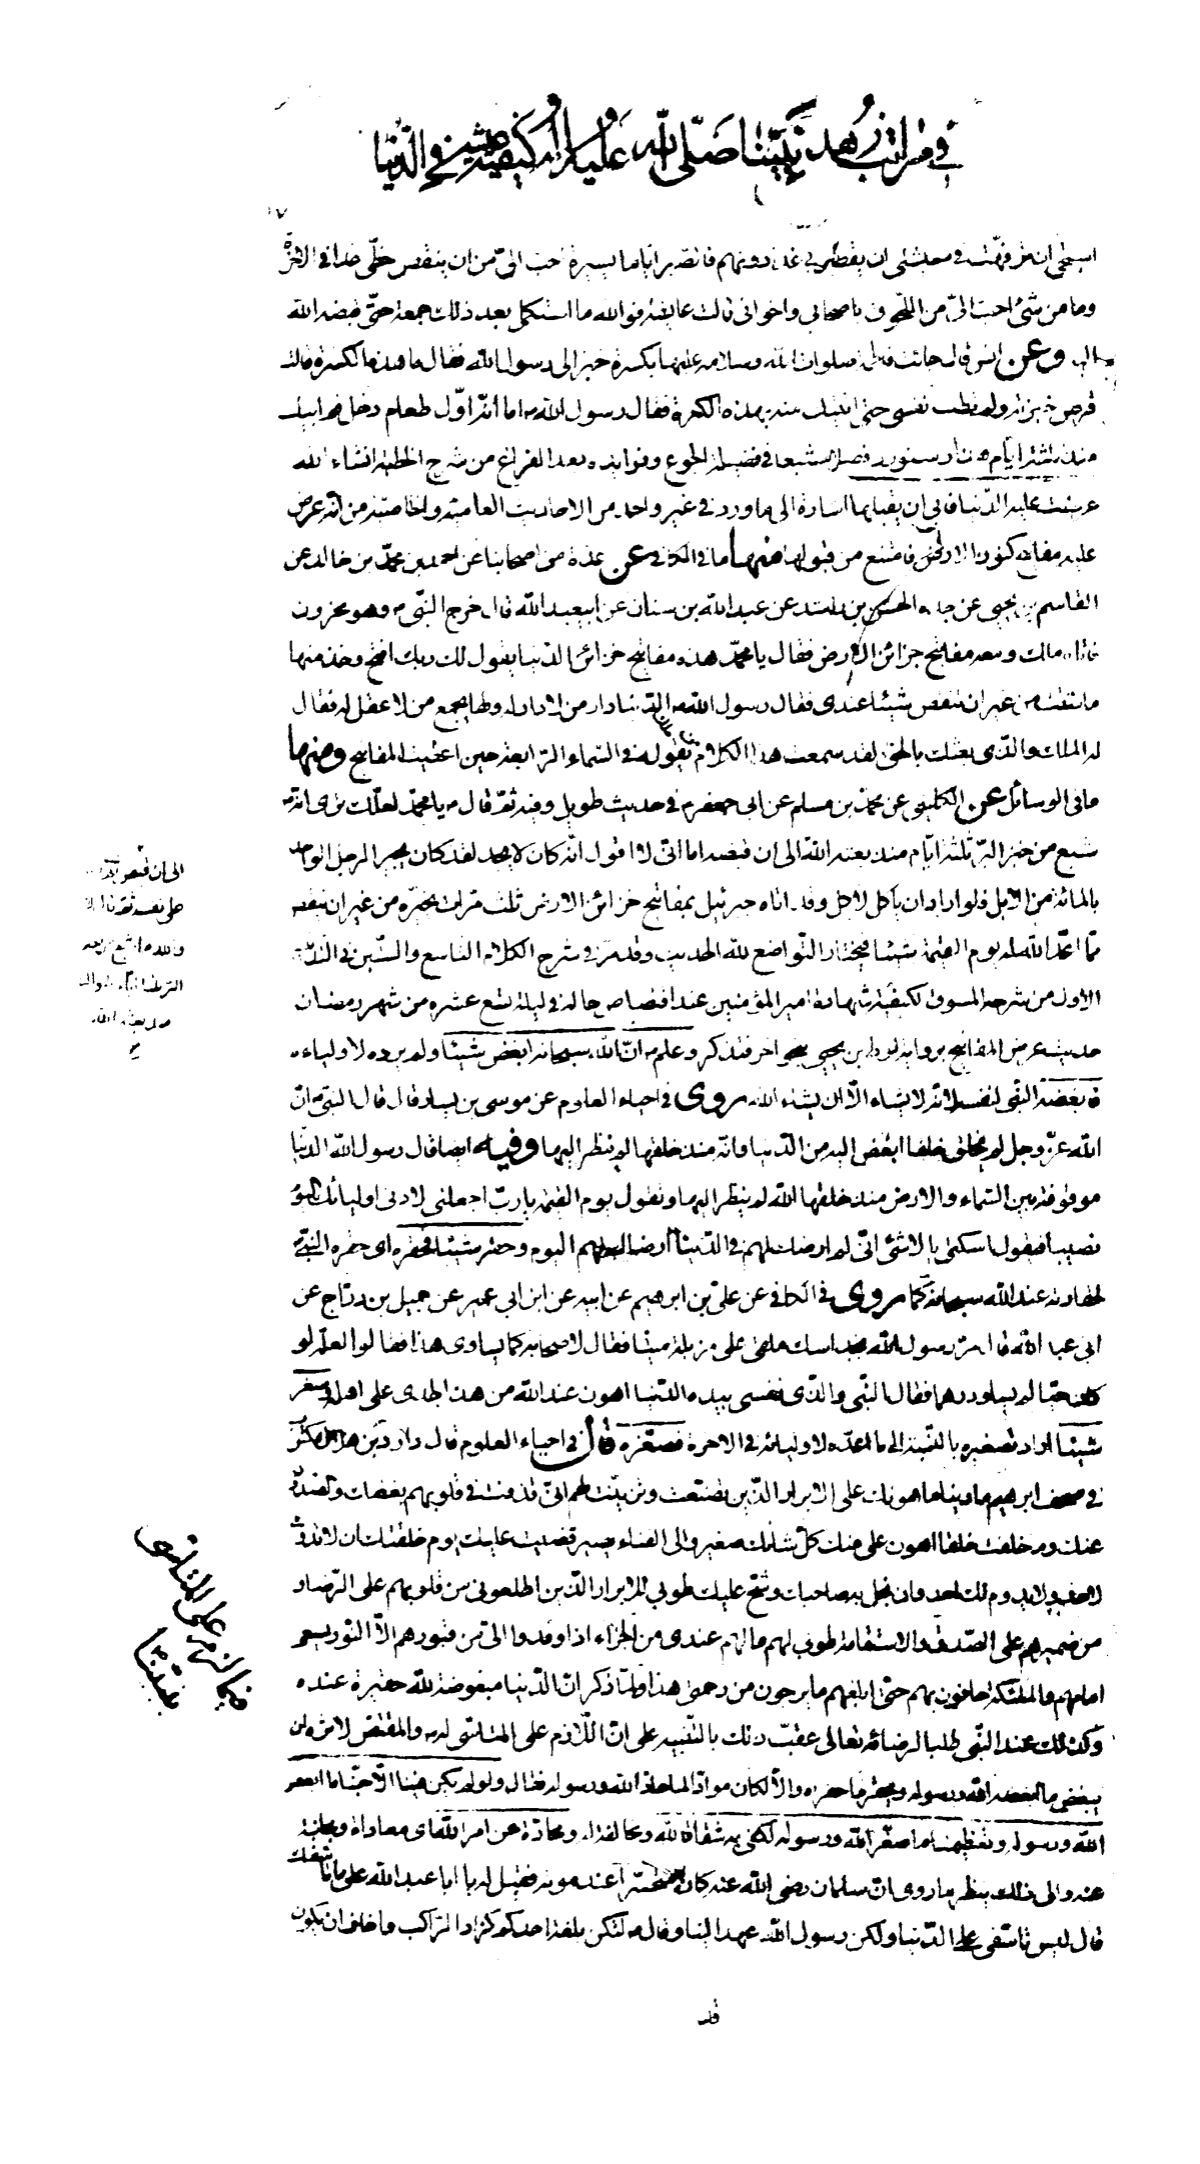 في مراتب زهد نبيّنا صلّى الله عليه وآله وكيفيّة عيشه في الدّنيا
استحيي ان ترفّهت في معيشتي ان يقصّر بي غدا دونهم فاصبر ايّاما يسيرة احبّ الىّ من ان ينقص حظّى غدا في الاخرة
وما من شيء احبّ الىّ من اللّحوق باصحابي واخواني قالت عايشة فو الله ما استكمل بعد ذلك جمعة حتّى قبضه الله
اليه وعن انس قال جائت فاطمة صلوات الله وسلامه عليها بكسرة خبز الى رسول الله فقال ما هذه الكسرة قالت
قرص خبزته ولم تطب نفسي حتى اتيتك منه بهذه الكسرة فقال رسول الله ص اما انّه اوّل طعام دخل فم ابيك
منذ ثلثة ايّام هذا وسنورد فصلا مشبعا في فضيلة الجوع وفوايده بعد الفراغ من شرح الخطبة انشاء الله
عرضت عليه الدّنيا فابى ان يقبلها اشارة الى ما ورد في غير واحد من الاحاديث العاميّة والخاصيّة من انّه عرض
عليه مفاتيح كنوز الارض فامتنع من قبولها منها ما في الكافي عن عدّة من اصحابنا عن احمد بن محمّد بن خالد عن
القاسم بن يحيى عن جدّه الحسن بن راشد عن عبد الله بن سنان عن ابيعبد الله قال خرج النّبي ص وهو محزون
فاتاه ملك ومعه مفاتيح خزائن الارض فقال يا محمّد هذه مفاتيح خزائن الدّنيا يقول لك ربك افتح وخذ منها
ما شئت من غير ان تنقص شيئا عندى فقال رسول الله ص الدّنيا دار من لا دار له ولها يجمع من لا عقل له فقال
له الملك والّذى بعثك بالحق لقد سمعت هذا الكلام من ملك يقوله في السّماء الرّابعة حين اعطيت المفاتيح ومنها
ما في الوسائل عن الكلينى عن محمّد بن مسلم عن ابى جعفر ع في حديث طويل وفيه ثمّ قال ع يا محمّد لعلّك ترى انّه
شبع من خبز البرّ ثلثة ايّام منذ بعثه الله الى ان قبضه اما انّى لا اقول انّه كان لا يجد لقد كان يجيز الرجل الواحد
بالمائة من الابل فلو اراد ان يأكل لاكل وقد اتاه جبرئيل بمفاتيح خزائن الارض ثلث مرّات يخيّره من غير ان ينقصه
ممّا اعدّ الله له يوم القيمة شيئا فيختار التّواضع لله الحديث وقد مرّ في شرح الكلام التاسع والستّين في التّذنيب
الاول من شرحه المسوق لكيفيّة شهادة امير المؤمنين عند اقتصاص حاله في ليلة تسع عشره من شهر رمضان
حديث عرض المفاتيح برواية لوط بن يحيى بنحو اخر فتذكر وعلم ص انّ الله سبحانه ابغض شيئا ولم يرده لاوليائه
فابغضه النّبي لنفسه لانّه لا يشاء الّا ان يشاء الله روى في احياء العلوم عن موسى بن يسار قال قال النبي ص انّ
الله عزّ وجل لم يخلق خلقا ابغض اليه من الدّنيا وانّه منذ خلقها لم ينظر اليها وفيه ايضا قال رسول الله الدنيا
موقوفة بين السّماء والارض منذ خلقها الله لم ينظر اليها وتقول يوم القيمة يا ربّ اجعلني لادنى اوليائك اليوم
نصيبا فيقول اسكتى يا لا شئ انّى لم ارضك لهم في الدّنيا ارضاك لهم اليوم وحقر شيئا فحقره اى حقره النّبي ص
لحقارته عند الله سبحانه كما روى في الكافي عن علي بن ابرهيم عن ابيه عن ابن ابي عمير عن جميل بن درّاج عن
ابي عبد الله قال مرّ رسول الله بجدى اسك ملقى على مزبلة ميتا فقال لاصحابه كم يساوى هذا فقالوا لعلّه لو
كان حيّا لم يساو درهما فقال النّبي والّذى نفسى بيده الدّنيا اهون عند الله من هذا الجدى على اهله وصغر
شيئا اراد تصغيره بالنّسبة الى ما اعدّه لاوليائه في الاخرة فصغّره قال في احياء العلوم قال داود بن هلال مكتوب
في صحف ابرهيم يا دنيا ما اهونك على الابرار الّذين تصنّعت وتزيّنت لهم انّى قذفت في قلوبهم بغضك والصّدّ
عنك وما خلقت خلقا اهون علىّ منك كلّ شانك صغير والى الفناء يصير قضيت عليك يوم خلقتك ان لا تدومى
لاحد ولا يدوم لك احد وان بخل بك صاحبك وشحّ عليك طوبى للابرار الّذين اطلعونى من قلوبهم على الرّضا و
من ضميرهم على الصّدق والاستقامة طوبى لهم ما لهم عندى من الجزاء اذا وفدوا الىّ من قبورهم الّا النّور يسعى
امامهم والملئكة حافّون بهم حتّى ابلغهم ما يرجون من رحمتى هذا ولمّا ذكر انّ الدّنيا مبغوضة لله حقيرة عنده
وكذلك عند النّبي طلبا لرضائه تعالى عقّب ذلك بالتّنبيه على انّ اللّازم على المتاسّى له ص والمقتصّ لاثره ان
يبغض ما ابغضه الله ورسوله ويحقر ما حقره والّا لكان موادّا لما حادّ الله ورسوله فقال ولو لم يكن فينا الّا حبّنا ما ابغض
الله ورسوله وتعظيمنا ما صغّر الله ورسوله لكفى به شقاقا لله ومخالفة له ومحادّة عن امر الله اى معاداة ومجانبة
عنه والى ذلك ينظر ما روى انّ سلمان رضى الله عنه كان متحسّرا عند موته فقيل له يا ابا عبد الله على ما تاسّفك
قال ليس تاسّفى على الدّنيا ولكن رسول الله عهد الينا وقال ليكن بلغة احدكم كزاد الرّاكب واخاف ان نكون
قد
الى ان قبضه
على نفسه ثمّ قال
والله ما شبع من خبز
البرّ ثلثة ايّام متوالية
منذ بعثه الله
فيما لزم على المتأسى
بنبيّنا